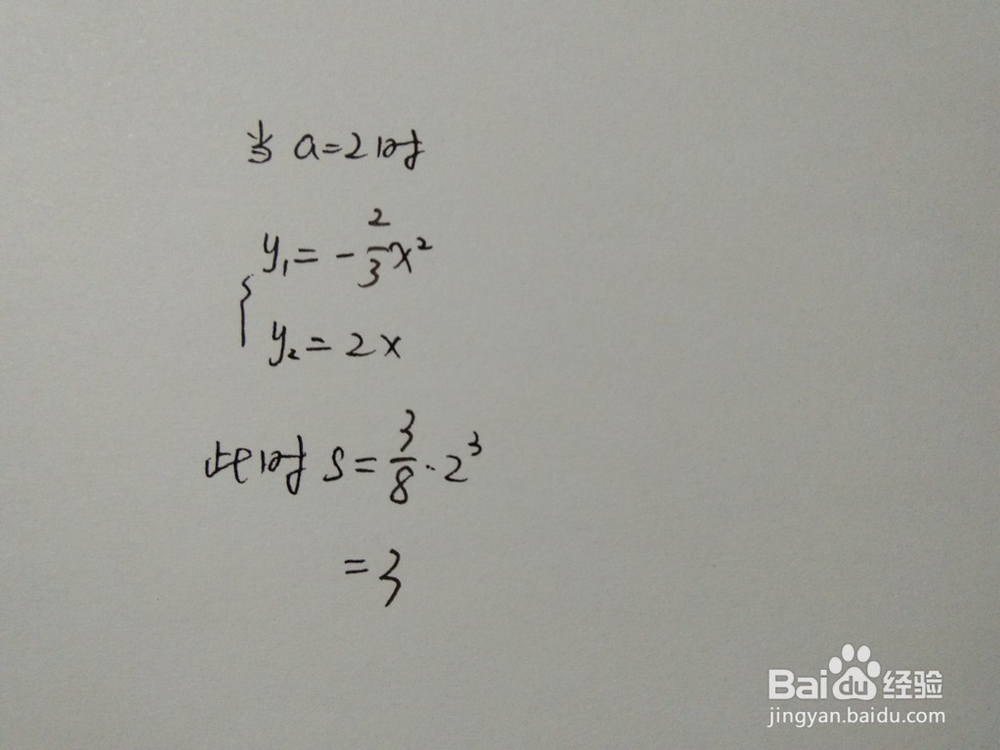 当 a=2时
y₁=-2/3x²
y₂=2x
此时 S=3/8·2³
=3
Bai du 经验
jingyan.baidu.com